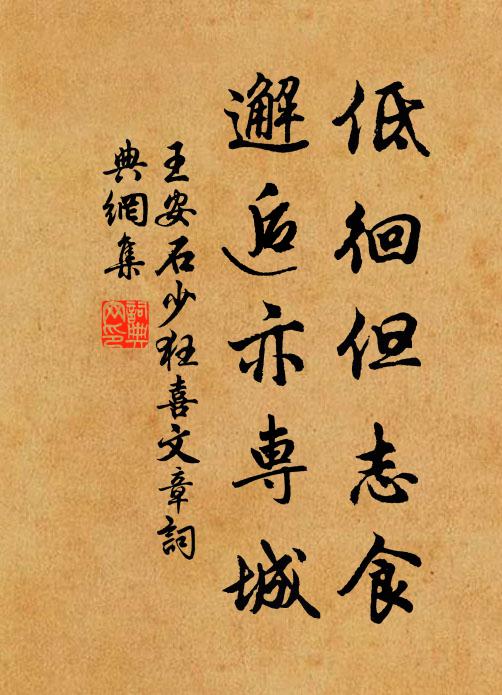 低徊但志食
邂逅亦專城
王安石少狂喜文章詞
典網集
詞典
网印